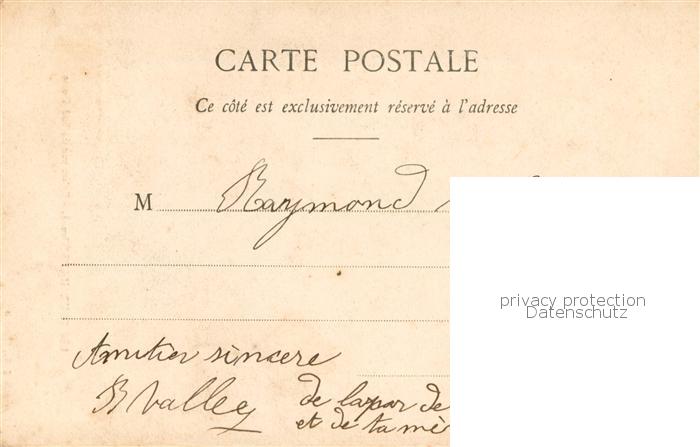 CARTE POSTALE
Ce côté est exclusivement réservé à l'adresse
M Raymond
privacy protection
Datenschutz
Amitier sincere
B Valley
de lapar de
et de ta mè